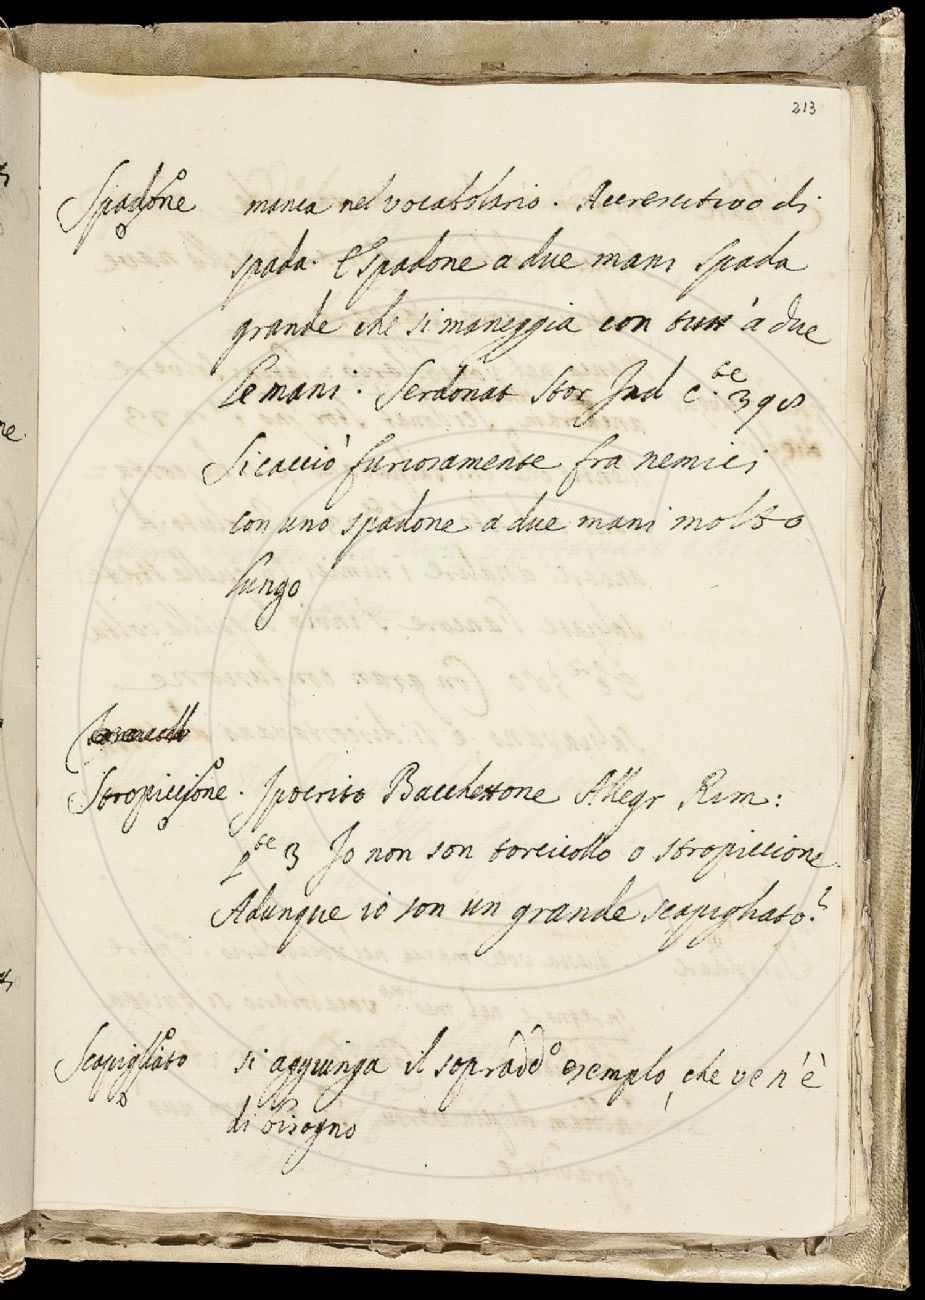 213
Spadone manca nel vocabolario. Accrescitivo di
spada. E Spadone a due mani Spada
grande che si maneggia con tutt' à due
le mani: Serdonat Stor Ind C.te 398
Si cacciò furiosamente fra nemici
con uno spadone a due mani molto
lungo
Stropiccione. Ipocrito Bacchettone Allegr Rim:
P.te 3 Io non son torcicollo o stropiccione
Adunque io son un grande scapigliato?
Scapigliato si aggiunga il sopradd.o esemplo, che ve n'è
di bisogno